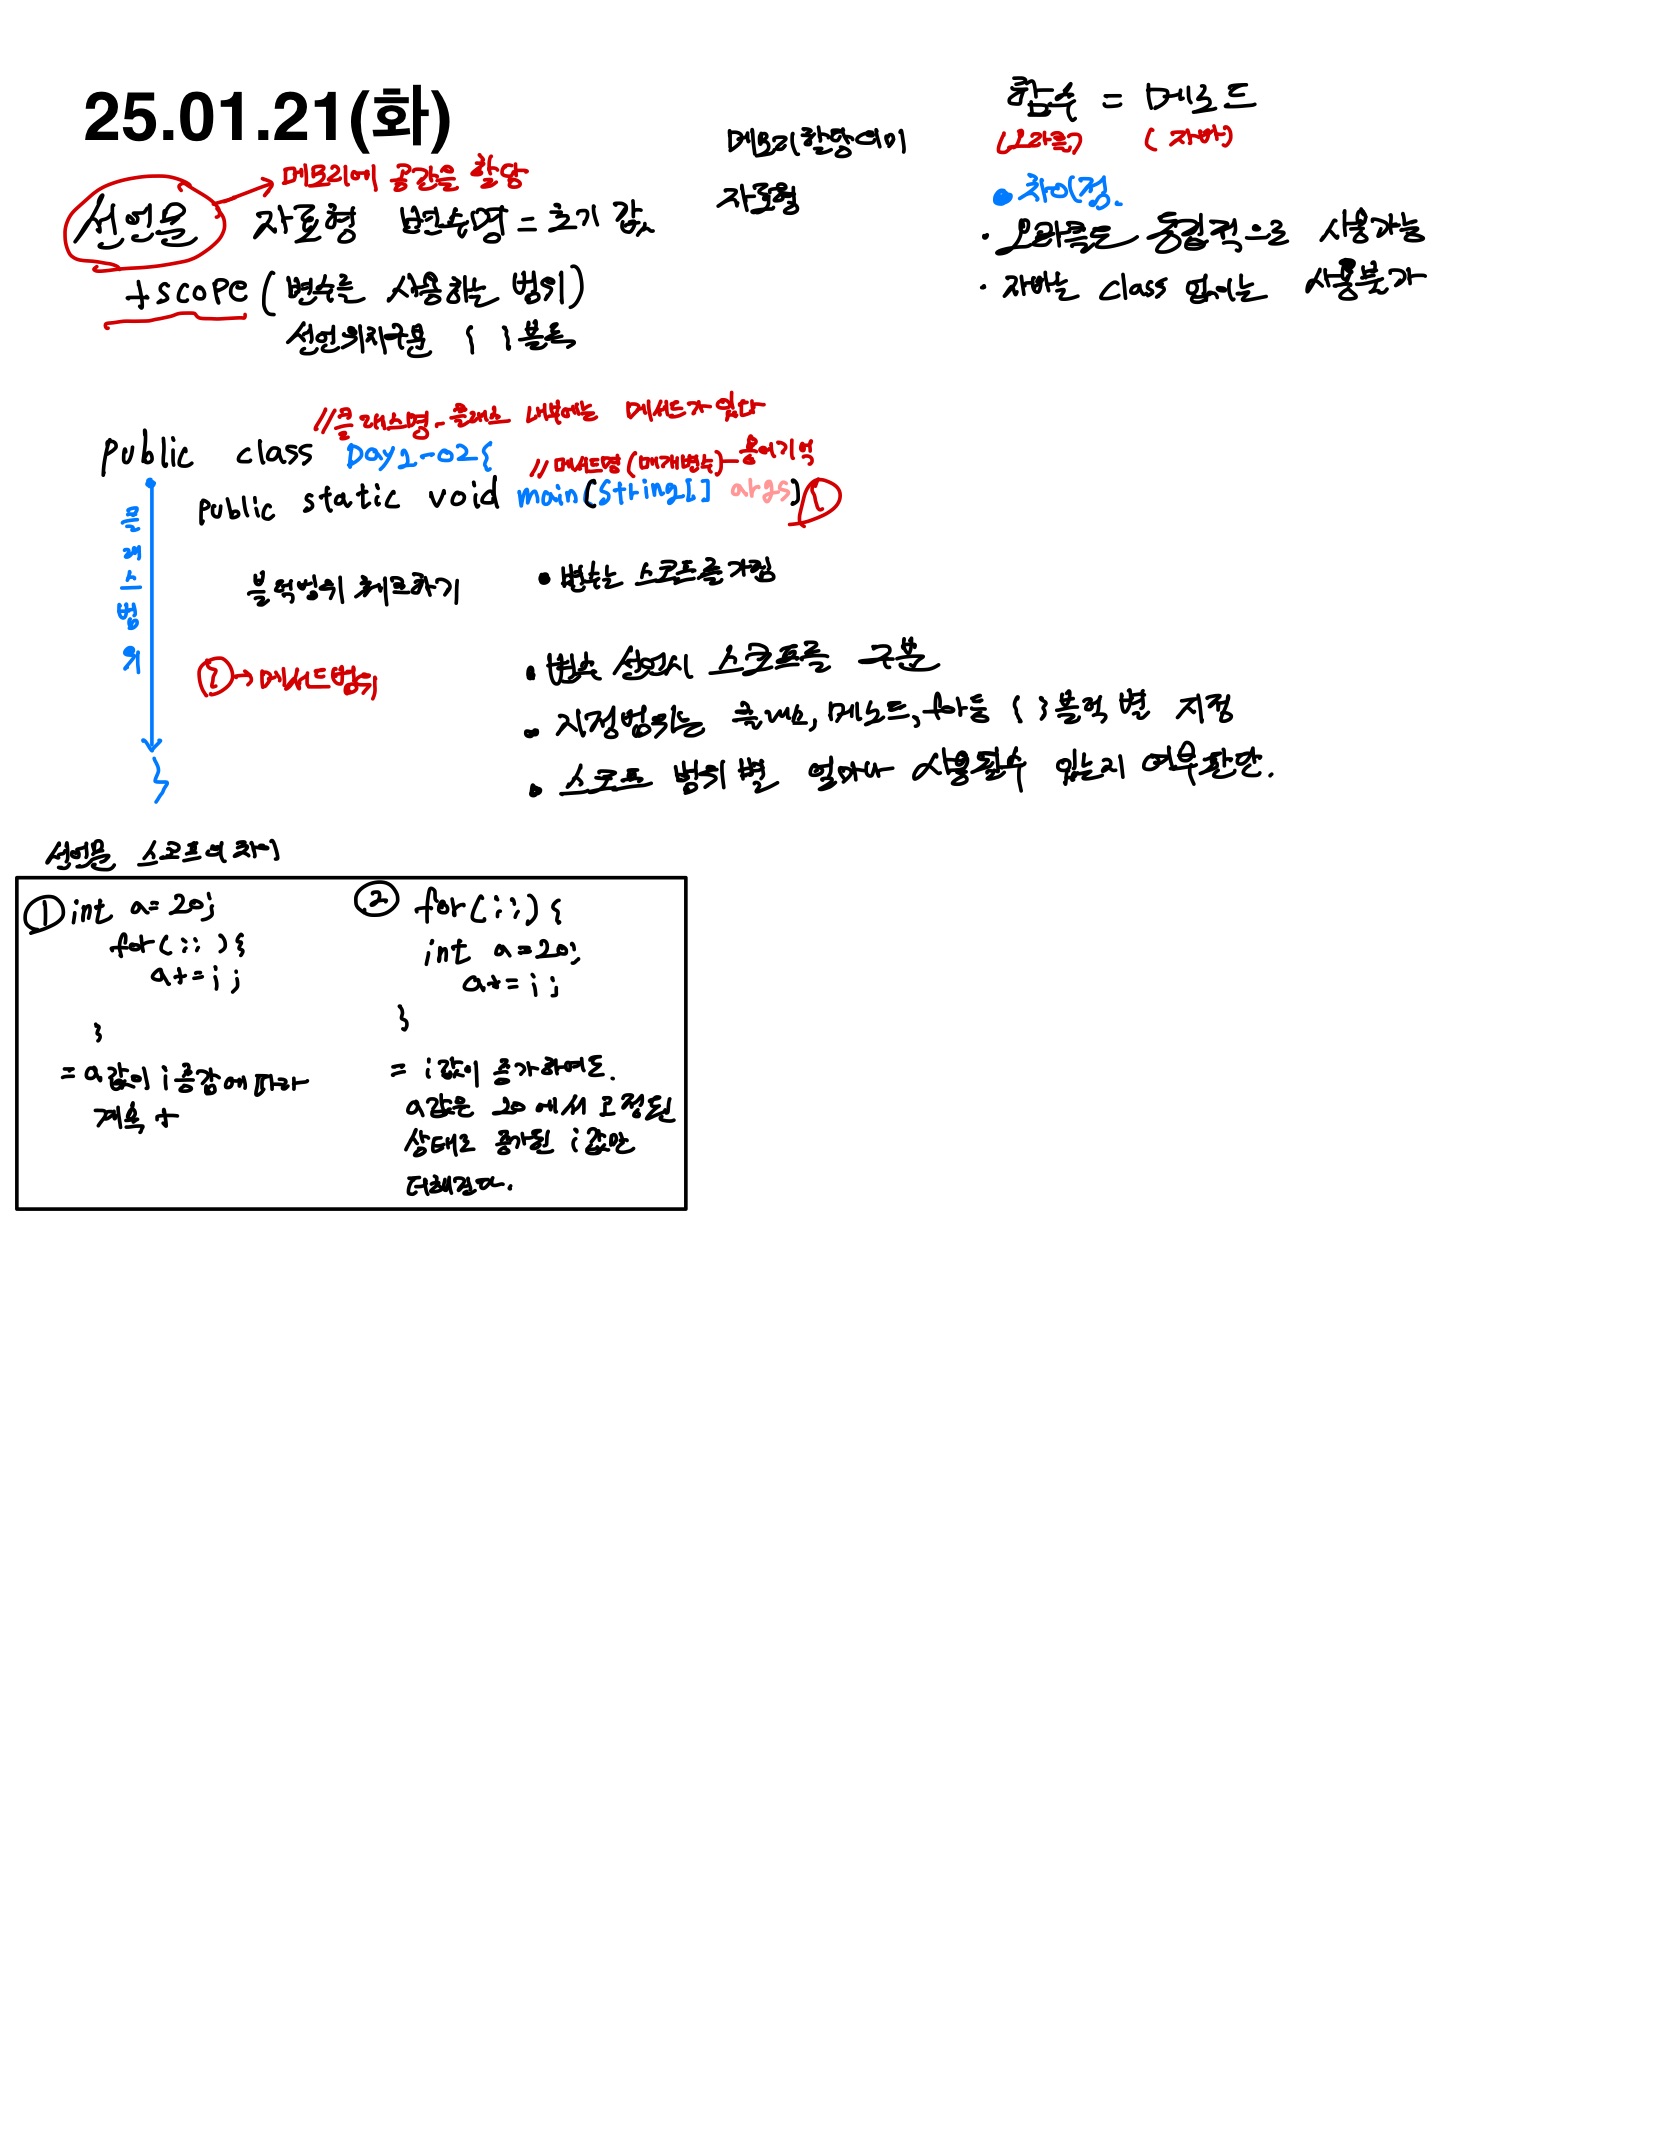 25.01.21(화)
메모리에 공간을 할당
선언문 자료형 변수명 = 초기 값
+scope (변수를 사용하는 범위)
선언위치구분 { } 블록
메모리할당
자료형
함수 = 메소드
(오라클) (자바)
• 차이점.
· 오라클도 독립적으로 사용가능
· 자바는 class 없이는 사용불가
//클래스명-클래스 내부에는 메서드가 있다
public class Day2-02{
//메서드명(매개변수)-용어기억
public static void main(String[] args) {
클래스범위
블럭범위 체크하기
• 변수는 스코프를 가짐
} → 메서드범위
• 변수 선언시 스코프를 구분
• 지정범위는 클래스, 메소드, for등 { } 블럭 별 지정
• 스코프 범위별 얼마나 사용될수 있는지 여부판단.
}
선언문 스코프의 차이
① int a=20;
for(;; ){
a+=i;
}
= a값이 i 증감에 따라
계속 +
② for(;;){
int a=20;
a+=i;
}
= i값이 증가하여도.
a값은 20에서 고정된
상태로 증가된 i값만
더해진다.